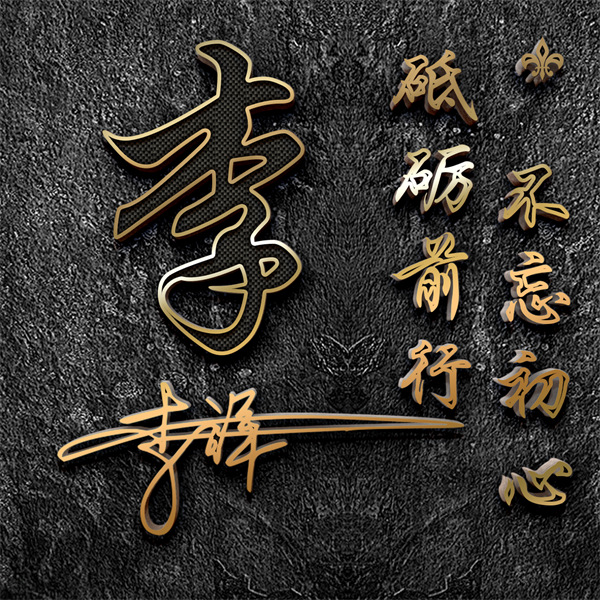 不忘初心
砥砺前行
李
李